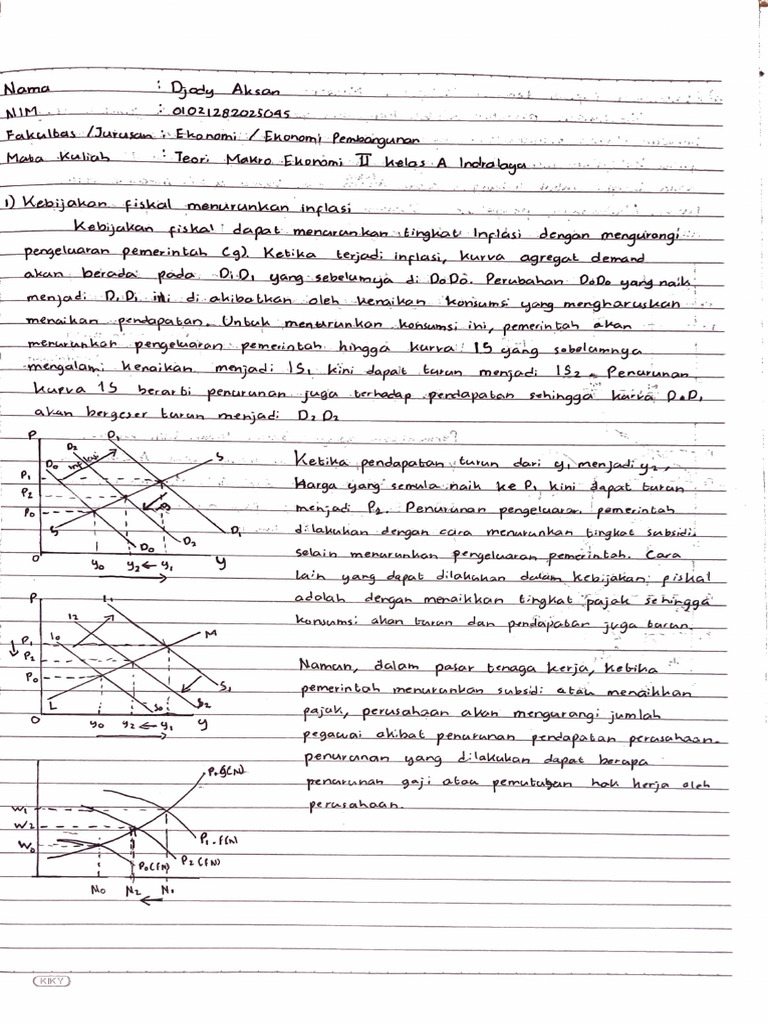 Nama : Djody Aksan
NIM : 01021282025045
Fakultas /Jurusan : Ekonomi / Ekonomi Pembangunan
Mata Kuliah : Teori Makro Ekonomi II kelas A Indralaya
1) Kebijakan fiskal menurunkan inflasi
Kebijakan fiskal dapat menurunkan tingkat Inflasi dengan mengurangi
pengeluaran pemerintah (g). Ketika terjadi inflasi, kurva agregat demand
akan berada pada D1D1 yang sebelumnya di D0D0. Perubahan D0D0 yang naik
menjadi D1D1 ini di akibatkan oleh kenaikan konsumsi yang mengharuskan
menaikan pendapatan. Untuk menurunkan konsumsi ini, pemerintah akan
menurunkan pengeluaran pemerintah hingga kurva IS yang sebelumnya
mengalami kenaikan menjadi IS1 kini dapat turun menjadi IS2. Penurunan
kurva IS berarti penurunan juga terhadap pendapatan sehingga kurva D1D1
akan bergeser turun menjadi D2D2
P
D0
D2
inflasi
D1
S
P1
P2
P0
S
D0
D2
D1
O
y0
y2
←
y1
y
Ketika pendapatan turun dari y1 menjadi y2,
Harga yang semula naik ke P1 kini dapat turun
menjadi P2. Penurunan pengeluaran pemerintah
dilakukan dengan cara menurunkan tingkat subsidi.
selain menurunkan pengeluaran pemerintah. Cara
lain yang dapat dilakukan dalam kebijakan fiskal
adalah dengan menaikkan tingkat pajak sehingga
konsumsi akan turun dan pendapatan juga turun.
P
I0
I2
I1
M
P1
P2
P0
L
S0
S2
S1
O
y0
y2
←
y1
y
Namun, dalam pasar tenaga kerja, ketika
pemerintah menurunkan subsidi atau menaikkan
pajak, perusahaan akan mengurangi jumlah
pegawai akibat penurunan pendapatan perusahaan.
penurunan yang dilakukan dapat berapa
penurunan gaji atau pemutusan hak kerja oleh
perusahaan.
P.g(N)
W1
W2
W0
P1.f(N)
P2(fN)
P0(fN)
N0
N2
N1
←
KIKY